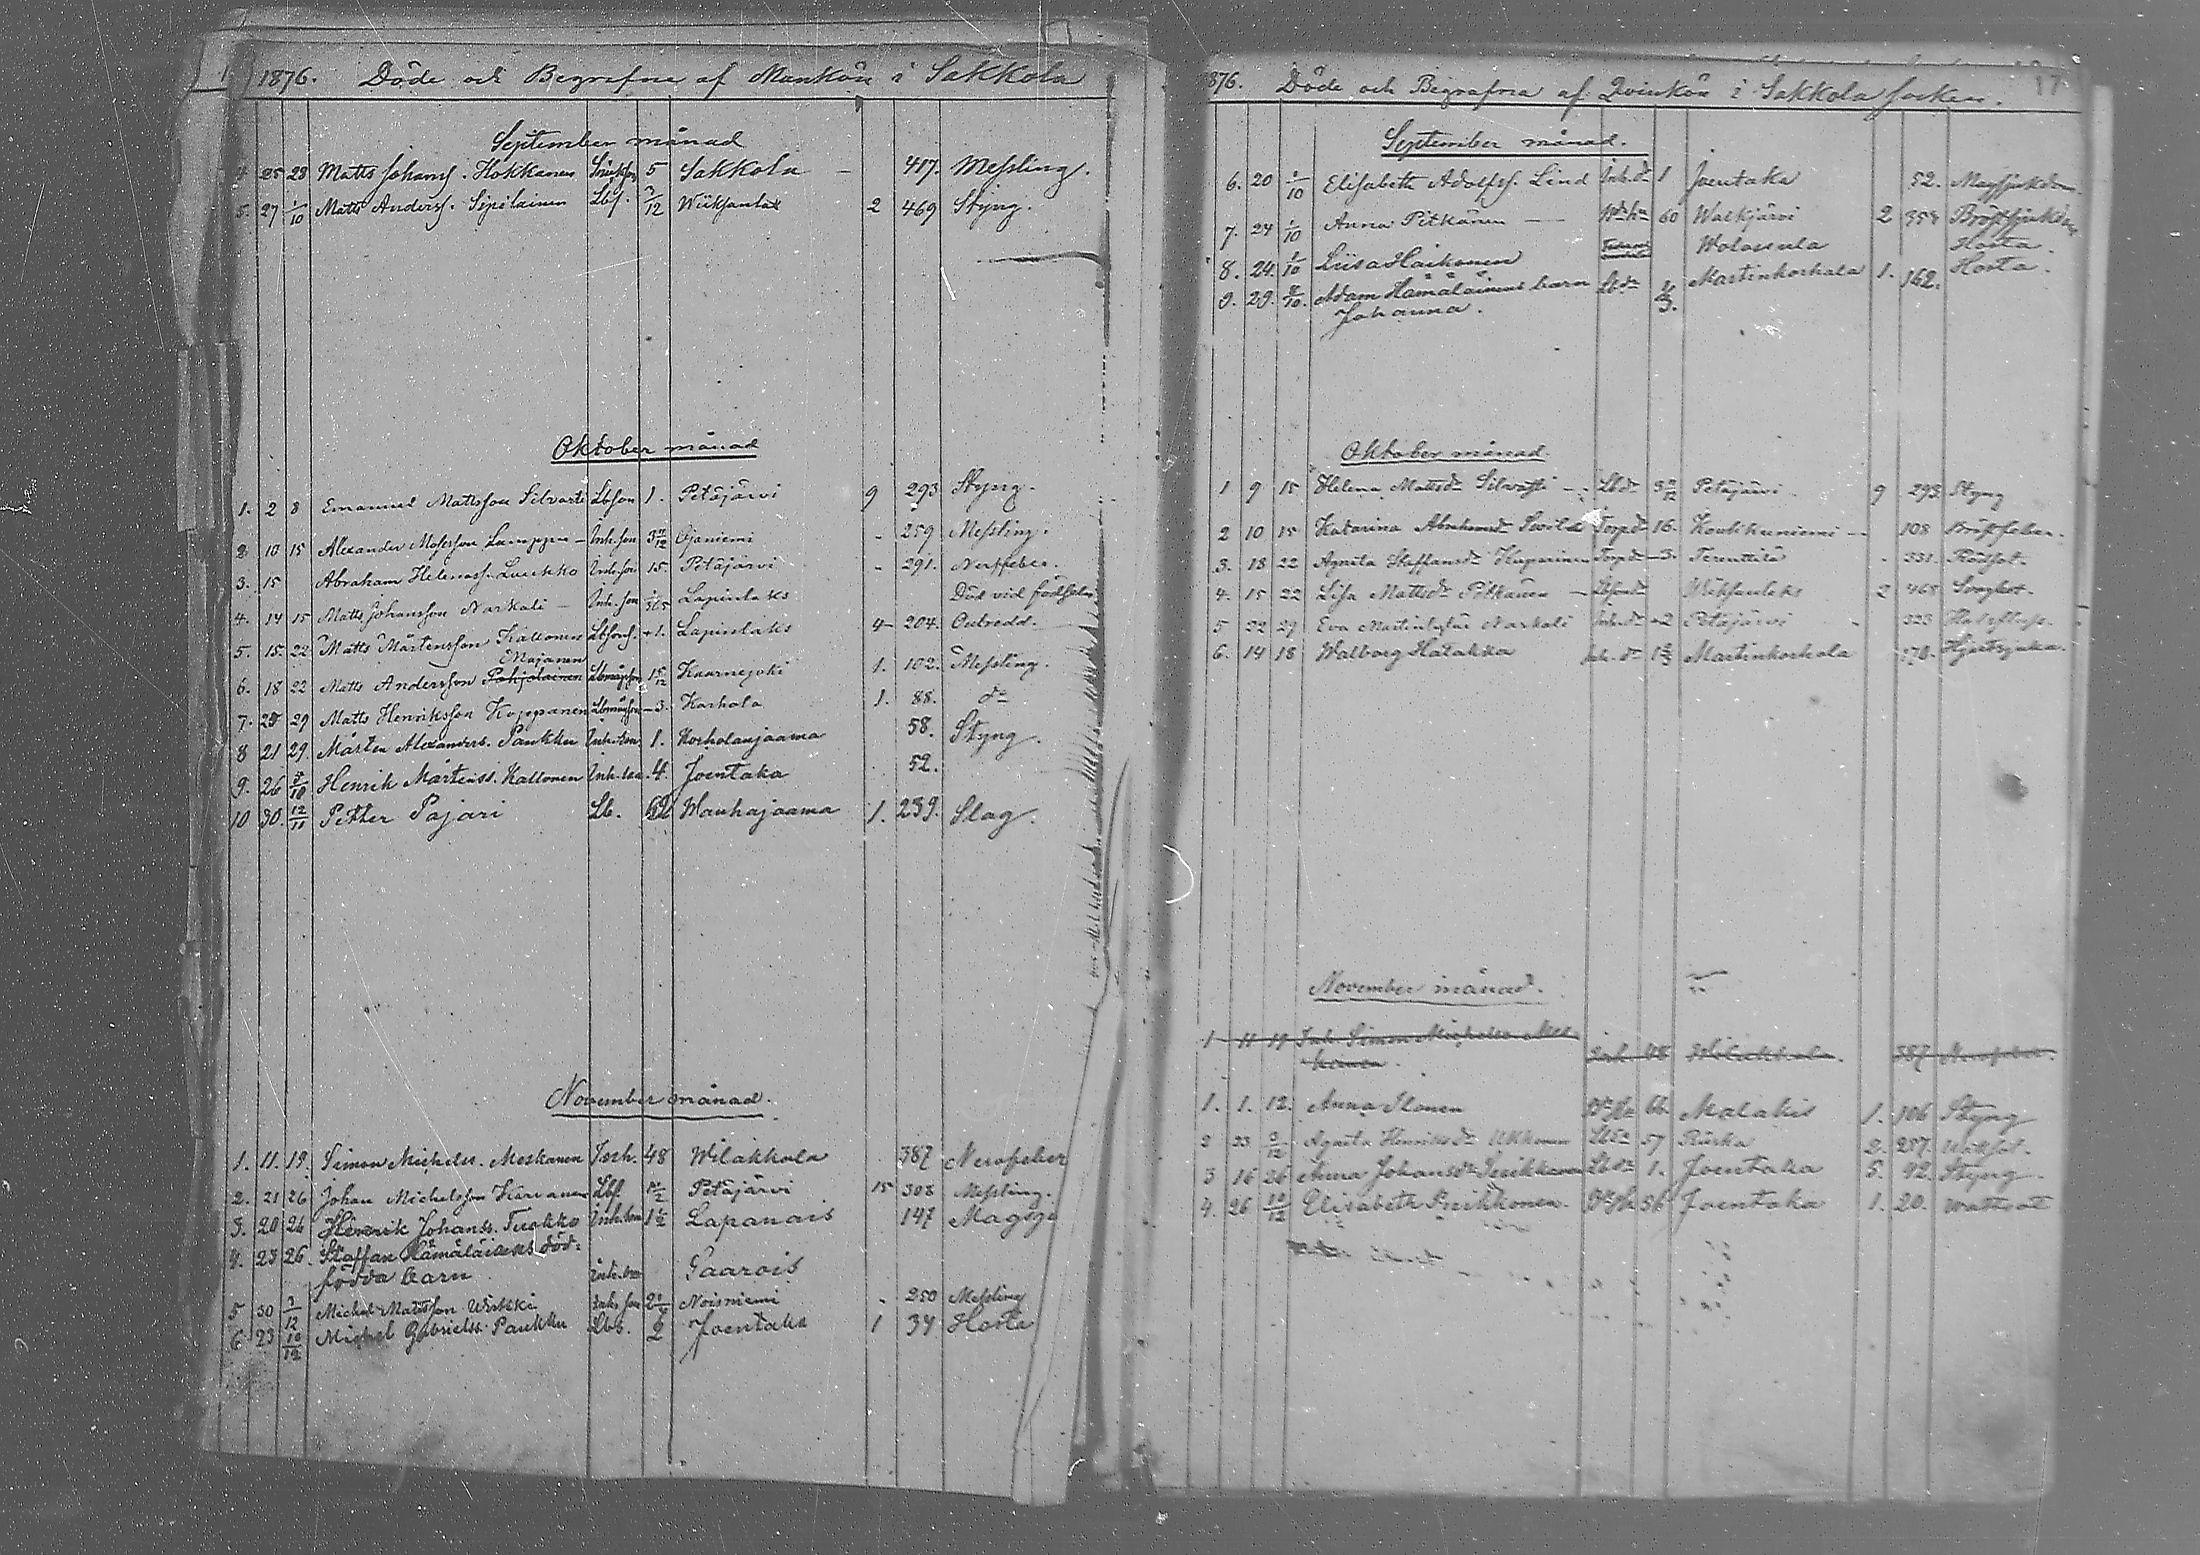 1876. Döde och Begrafne af Mankön i Sakkola
September månad
4. 25 28 Matts Johanss. Hokkanen 5 Sakkola - 417. Messling.
5. 27 1/10 Matts Anderss. Sipilainen Lbs. /12 Wiiksanlax 2 469 Styng.
Oktober månad
1. 2 8 Emanuel Mattsson Silvasti Lbson 1. Petäjärvi 9 293 Styng.
2. 10 15 Alexander Mosesson Lumppu - Inh.son 3 /12 Ojaniemi - 259 Messling.
3. 15 Abraham Heleness. Luukko Inh.son 15. Petäjärvi - 291. Nerffeber.
4. 14 15 Matts Johansson Narkali - Inh.son /365 Lapinlaks Död vid födseln
5. 15. 22 Matts Mårtensson Kallonen 1. Lapinlaks 4 204.
Majanen
6. 18 22 Matts Andersson Pohjolainen 1 /12 Kaarnejoki 1. 102. Messling.
7. 25 29 Matts Henriksson Koppanen - 3. Koskola 1. 88. do
8 21 29. Mårten Alexanders. Paukku Inh.son 1. Koskolanjaama 58. Styng.
9. 26 /10 Henrik Mårtenss. Kallonen Inh.son 4. Joentaka 52.
10 30. 12/11 Petter Pajari Lb. 62 Wanhajaama 1. 239. Slag.
November månad.
1. 11. 19. Simon Michelss. Meskanen Inh. 48 Wilakkala 387 Nervfeber
2. 21 26 Johan Michelsson Karvanen Lbs. 1 /12 Petäjärvi 15 308 Messling.
3. 20 26 Henrik Johanss. Tuokko Inh.son 1 1/2 Lapanais 147 Magsju
4. 23 26. Staffan Hämäläinens död-
födda barn Inh.son Saarois
5 30 3/12 Michel Mattsson Wirkki Inh.son 2 Noisniemi - 250 Messling
6. 23 10/12 Michel Gabrielss. Paukku Lbs. 2 Joentaka 1 34 Hosta
1876. Döde och Begrafna af Qvinkön i Sakkola socken. 17
September månad.
6. 20 1/10 Elisabeth Adolfss. Lind Inh.dr 1 Joentaka 52. Magsjukdom
7. 24 1/10 Anna Pitkänen - 60 Walkjärvi 2 354 Bröstsjukdom
8. 24. 1/10 Liisa Haikonen Wolossula Hosta
9. 29. 8/10. Adam Hämäläinens barn Lbdr Martinkoskola 1. 162. Hosta.
Johanna.
Oktober månad
1 9 15 Helena Mattsdr Silvasti - Lbdr 3 /12 Petäjärvi 9 293. Styng
2 10 15 Katarina Abrahamsdr Torp.dr 16. Koukkuniemi - 108 Bröstfeber.
3. 18 22 Agneta Staffansdr Kuparinen Torp.dr - 3. Terenttilä - 331. Rödsot.
4. 15 22 Lisa Mattsdr Pitkänen - Wiiksanlaks 2 468
5 22 29 Eva Narkali Inh.dr 2 Petäjärvi - 323
6. 14 18 Walborg Hatakka Inh.dr 1 Martinkoskola 170.
November månad.
1 11 19 Inh. Simon Michelss. Mes-
kanen Inh. 48 Wilakkala. 387 Nervfeber.
1. 1. 12. Anna Ilonen 66. Malakis 1. 106 Styng
2 23 3/12 Agneta Henriksdr Ukkonen 57 Riiska 2. 257.
3 16 26 Anna Johansdr Lbdr 1. Joentaka 5. 92. Styng.
4. 26 10/12 Elisabeth Peikkonen. 56 Joentaka 1. 20. Wattsot